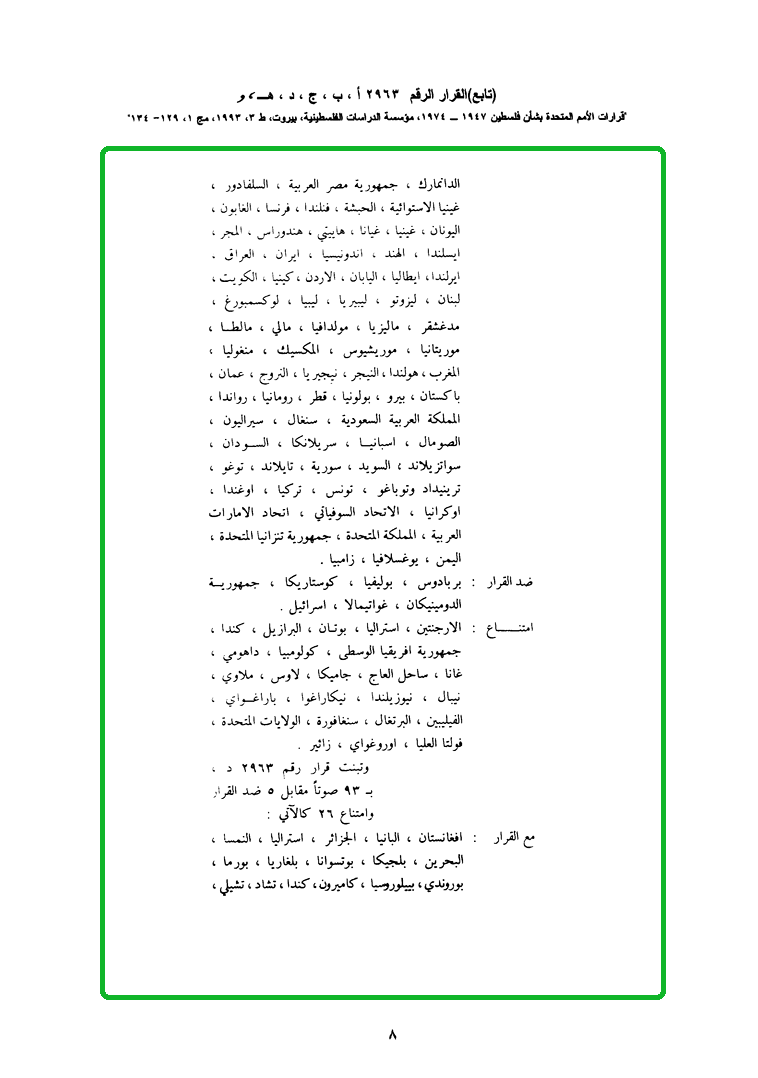 (تابع)القرار الرقم ٢٩٦٣ أ ، ب ، ج ، د ، هـ ، و
"قرارات الأمم المتحدة بشأن فلسطين ١٩٤٧ – ١٩٧٤، مؤسسة الدراسات الفلسطينية، بيروت، ط ٣، ١٩٩٣، مج ١، ١٢٩- ١٣٤"
الدانمارك ، جمهورية مصر العربية ، السلفادور ،
غينيا الاستوائية ، الحبشة ، فنلندا ، فرنسا ، الغابون ،
اليونان ، غينيا ، غيانا ، هاييتي ، هندوراس ، المجر ،
ايسلندا ، الهند ، اندونيسيا ، ايران ، العراق .
ايرلندا، ايطاليا ، اليابان ، الاردن ، كينيا ، الكويت ،
لبنان ، ليزوتو ، ليبيريا ، ليبيا ، لوكسمبورغ ،
مدغشقر ، ماليزيا ، مولدافيا ، مالي ، مالطـا ،
موريتانيا ، موريشيوس ، المكسيك ، منغوليا ،
المغرب ، هولندا ، النيجر ، نيجيريا ، النروج ، عمان ،
باكستان ، بيرو ، بولونيا ، قطر ، رومانيا ، رواندا ،
المملكة العربية السعودية ، سنغال ، سيراليون ،
الصومال ، اسبانيـا ، سريلانكا ، السـودان ،
سواتزيلاند ، السويد ، سورية ، تايلاند ، توغو ،
ترينيداد وتوباغو ، تونس ، تركيا ، اوغندا ،
اوكرانيا ، الاتحاد السوفياتي ، اتحاد الامارات
العربية ، المملكة المتحدة ، جمهورية تنزانيا المتحدة ،
اليمن ، يوغسلافيا ، زامبيا .
ضد القرار : بربادوس ، بوليفيا ، كوستاريكا ، جمهوريـة
الدومينيكان ، غواتيمالا ، اسرائيل .
امتنـــاع : الارجنتين ، استراليا ، بوتـان ، البرازيل ، كندا ،
جمهورية افريقيا الوسطى ، كولومبيا ، داهومي ،
غانا ، ساحل العاج ، جاميكا ، لاوس ، ملاوي ،
نيبال ، نيوزيلندا ، نيكاراغوا ، باراغـواي ،
الفيليبين ، البرتغال ، سنغافورة ، الولايات المتحدة ،
فولتا العليا ، اوروغواي ، زائير .
وتبنت قرار رقم ٢٩٦٣ د ،
بـ ٩٣ صوتاً مقابل ٥ ضد القرار
وامتناع ٢٦ كالآتي :
مع القرار : افغانستان ، البانيا ، الجزائر ، استراليا ، النمسا ،
البحرين ، بلجيكا ، بوتسوانا ، بلغاريا ، بورما ،
بوروندي، بييلوروسيا ، كاميرون، كندا ، تشاد ، تشيلي ،
٨